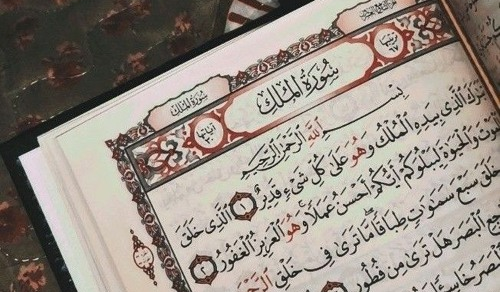 سُورَةُ المُلْكِ
سُورَةُ المُلْكِ
بِسْمِ اللَّهِ الرَّحْمَنِ الرَّحِيمِ
الَّذِي بِيَدِهِ الْمُلْكُ وَهُوَ عَلَى كُلِّ شَيْءٍ قَدِيرٌ ١ الَّذِي خَلَقَ
وَالْحَيَاةَ لِيَبْلُوَكُمْ أَيُّكُمْ أَحْسَنُ عَمَلًا وَهُوَ الْعَزِيزُ الْغَفُورُ ٢
خَلَقَ سَبْعَ سَمٰوَاتٍ طِبَاقًا مَا تَرٰى فِي خَلْقِ الرَّحْمٰنِ
الْبَصَرَ هَلْ تَرٰى مِنْ فُطُورٍ
الْبَصَرُ خَاسِئًا